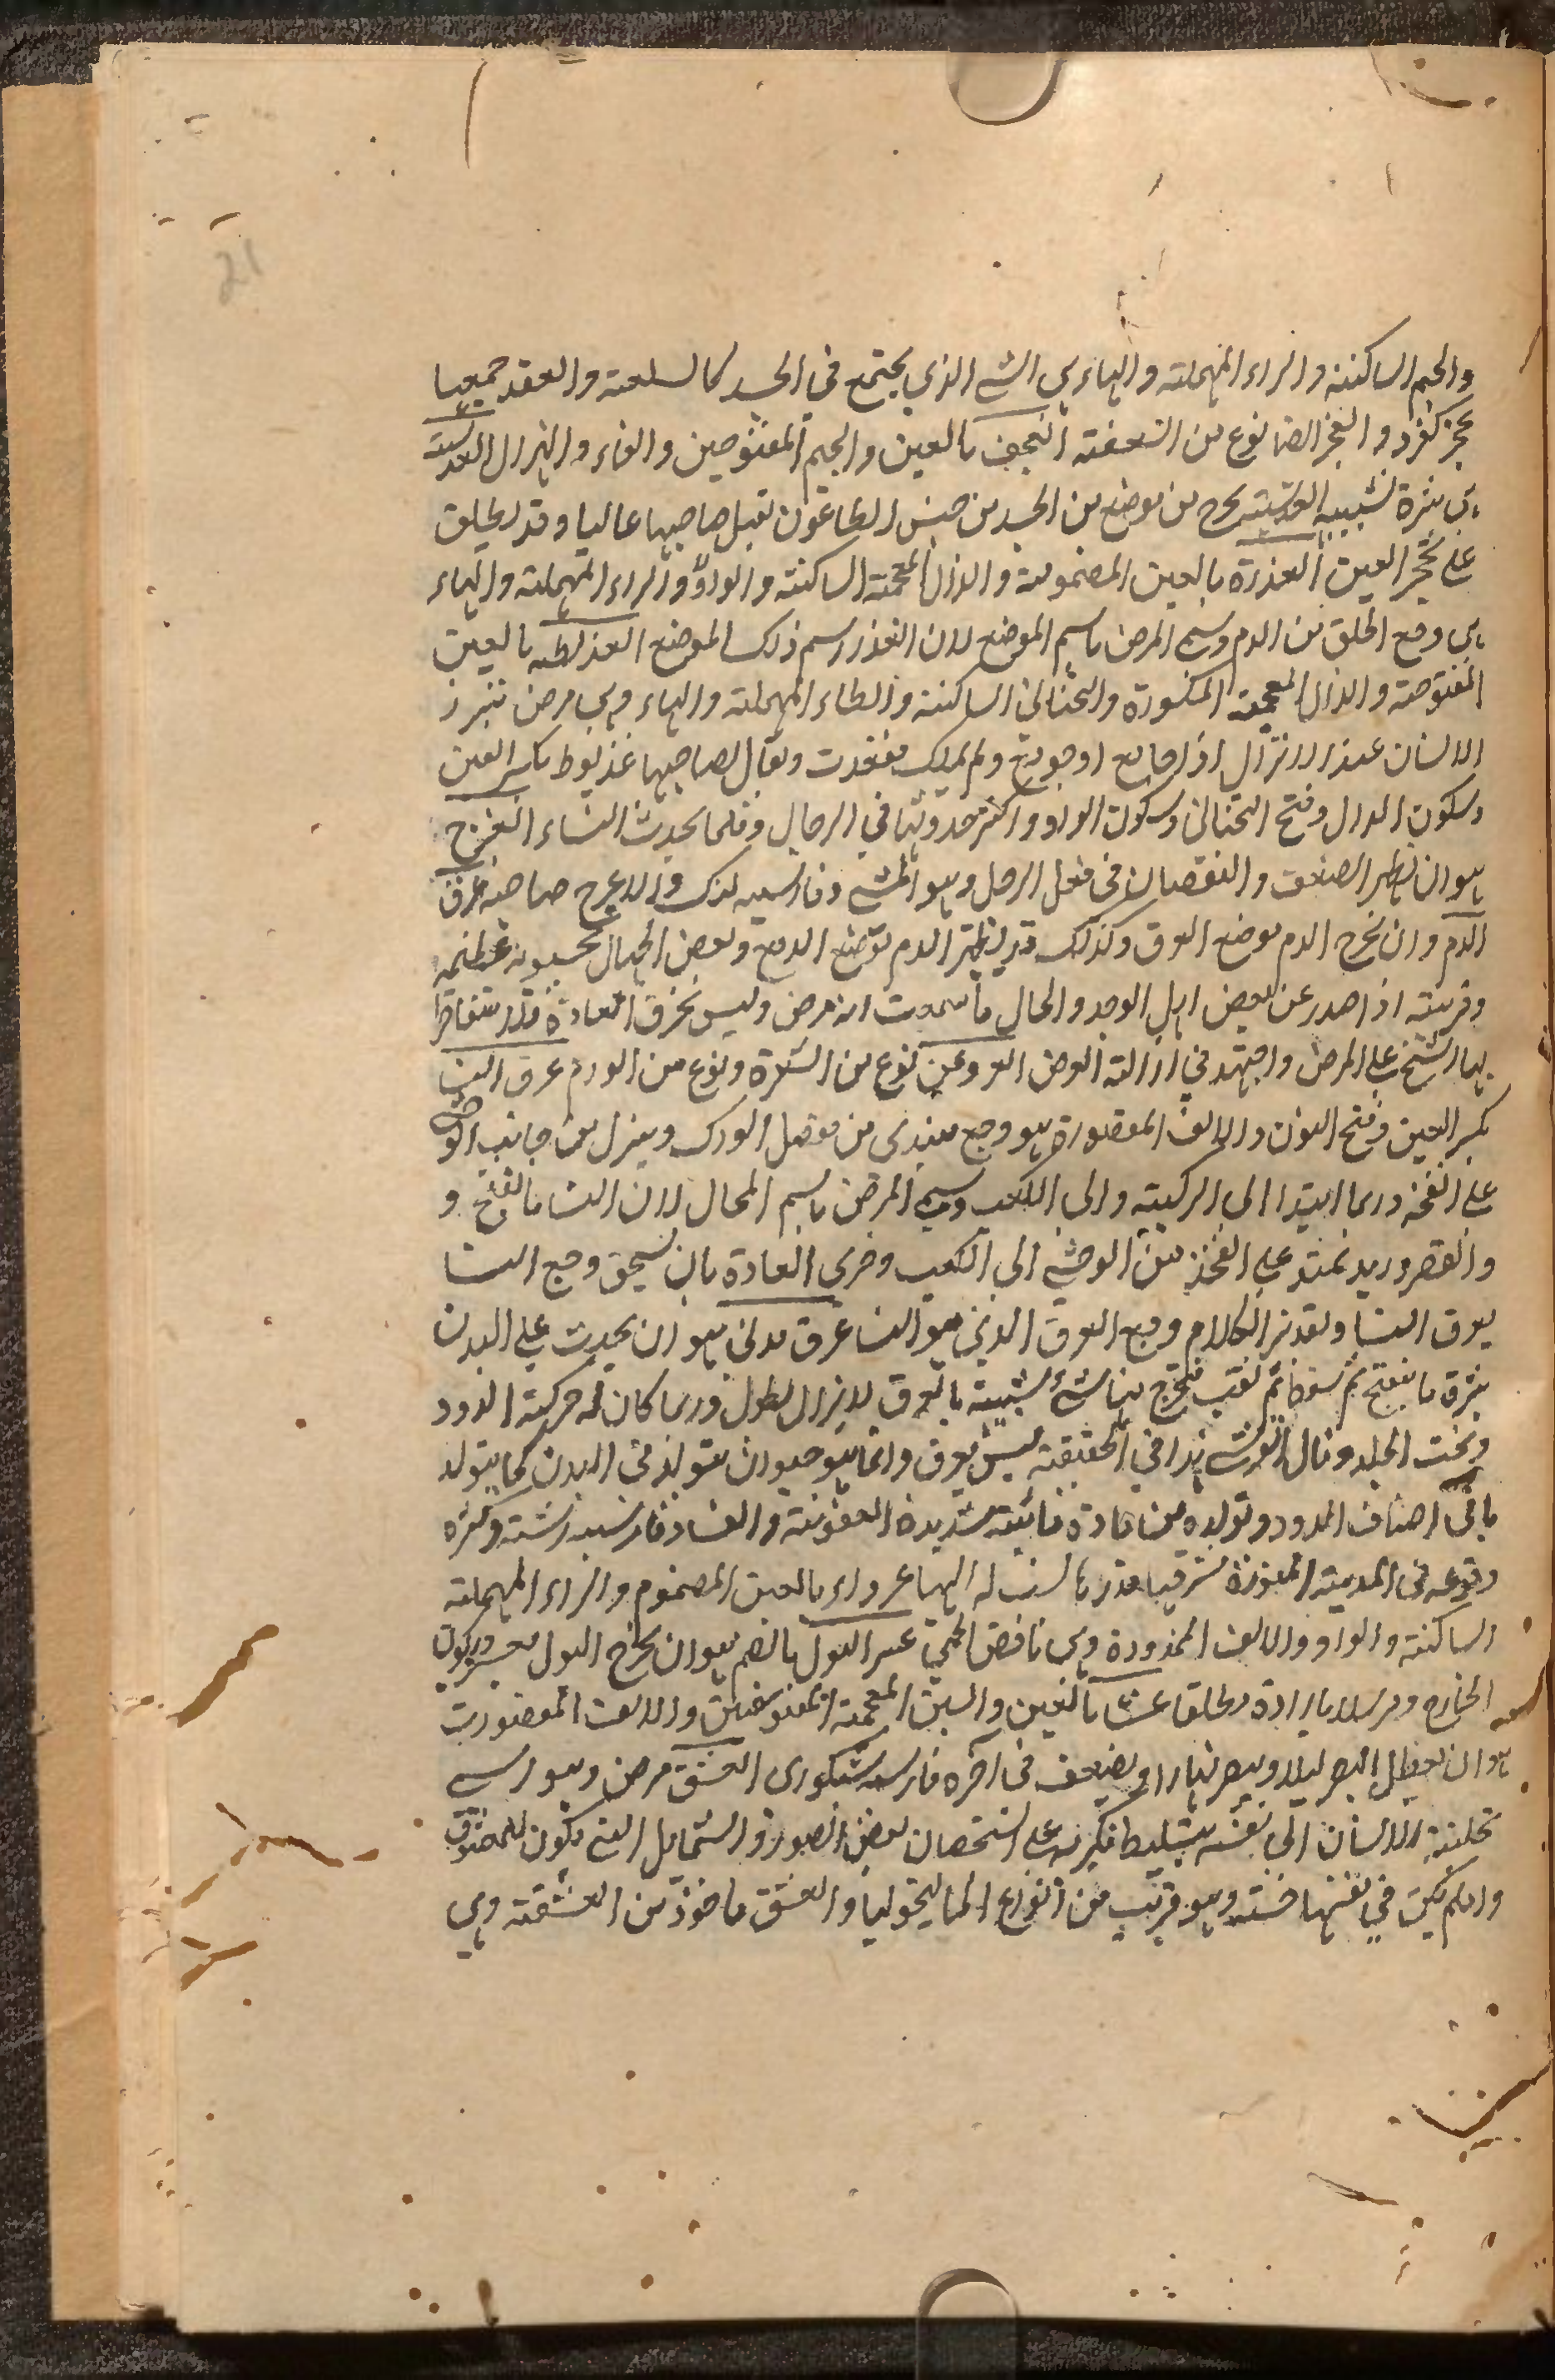 والجيم الساكنة والراء المهملة والهاء هى الشئ الذي يجتمع في الجسد كالسلعة والعقد جمعها
عجر كغرد و العجز ايضا نوع من السعفة العجف بالعين والجيم المفتوحين والفاء و الهزال العدسية
هى بثرة شبيهة بالعدسة تخرج من موضع من الجسد من جنس الطاعون تقبل صاحبها غالبا وقد يطلق
على تحجر العين العذرة بالعين المضمومة والذال المعجمة الساكنة والواو والراء المهملة والهاء
هى وجع الحلق من الدم وسمى المرض باسم الموضع لان العذر اسم ذلك الموضع العذيطة بالعين
المفتوحة والذال المعجمة المكسورة والتحتانى الساكنة والطاء المهملة والهاء وهى مرض تبرز
الانسان عند الانزال اذا جامع او جومع ولم يملك مقعدت ويقال لصاحبها عذيوط بكسر العين
وسكون الذال وفتح التحتانى وسكون الواو و اكثر حدوثها في الرجال وقلما يحدث النساء العرج
هو ان يظهر الضعف والنقصان فى فعل الرجل وهو المشى وفارسيه لنك والاعرج صاحبه عرق
الدم وان يخرج الدم موضع العرق وكذلك قد يظهر الدم موضع الدمع وبعض الجهال يحسبونه عظيمة
وقرينة اذا صدر عن بعض اهل الوجد والحال ما سمعت انه مرض وليس بخرق العادة
بها الشيخ على المرض واجتهد في ازالة العرض العروعن نوع من الشعرة ونوع من الورم عرق النسا
بكسر العين وفتح النون والالف المقصورة هو وجع يبتدى من مفصل الورك وينزل من جانب الوحشى
على الفخذ وربما ابتدا الى الركبة والى الكعب وسمى المرض باسم المحال لان النسا بالفتح و
والقصر وريد يمتد على الفخذ من الوحشى الى الكعب وجرى العادة بان يسمى وجع النسا
بعرق النسا وتقدير الكلام وجع العرق الذى هو النسا عرق مدنى هو ان يحدث على البدن
بثرة ما ينفتح ثم تنفط ثم تثقب فيخرج منها شئ شبيه بالعرق لا يزال يطول وربما كان له حركة الدود
وتحت الجلد وقال القرشى هذا في الحقيقة ليس بعرق وانما هو حيوان يتولد فى البدن كما يتولد
باقى اصناف الدود وتولده من مادة شديدة العفونة والفساد فارسيه رشته وكثره
وقوعه فى المدينة المنورة شرفها قدرها نسب له اليها عرواء بالعين المضموم والراء المهملة
الساكنة والواو والالف الممدودة وهى نافض الحمى عسر البول بالضم هو ان يخرج البول
الخارج ومرسلا بارادة مطلقا عشا بالعين والسين المعجمة المفتوحتين والالف المقصورة
هو ان يعطل البصر ليلا ويبصر نهارا ويضعف فى آخره فارسيه شبكورى العشق مرض وسواسى
تجلبه الانسان الى نفسه بتسليط فكرته على استحسان بعض الصور والشمايل التى تكون للمعشوق
وان لم يكن في نفسها حسنة وهو قريب من انواع الماليخوليا والعشق ماخوذ من العشقة وهى